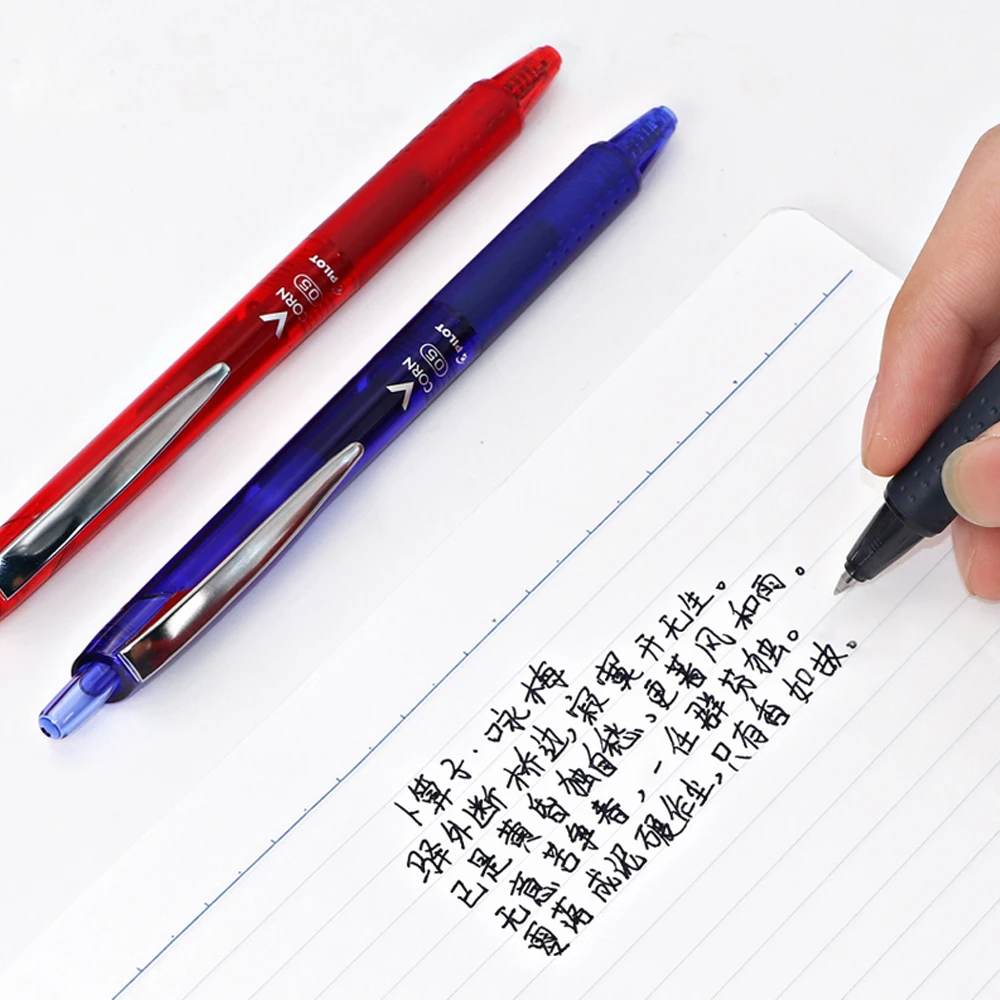 PILOT
05
V CORN
PILOT
05
V CORN
卜算子·咏梅
驿外断桥边,寂寞开无生。
已是黄昏独自愁,更着风和雨。
无意苦争春,一任群芬独。
零落成泥碾作尘,只有香如故。